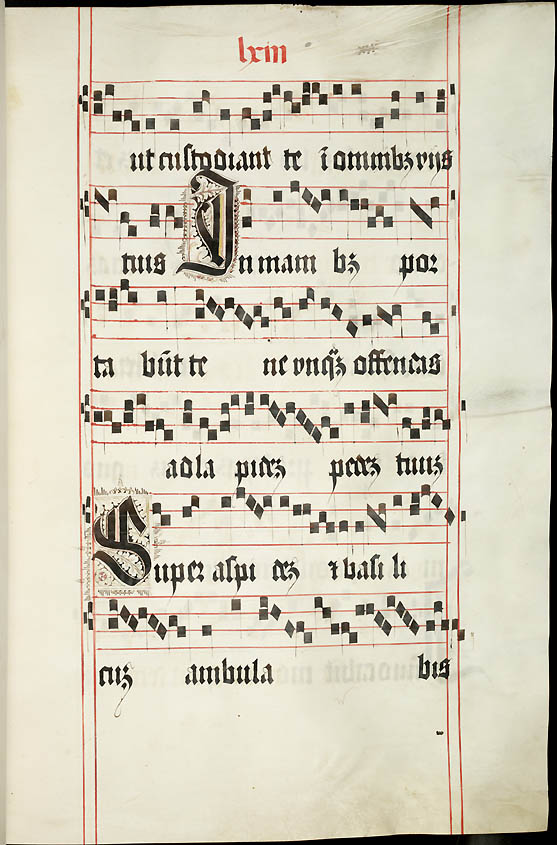 lxiii
ut custodiant te ī omnibꝫ vijs
tuis In mani bꝫ por
ta būt te ne vnqꝫ offendas
ad la pidez pedez tuuz
Super aspi dez ⁊ basi li
cuz ambula bis